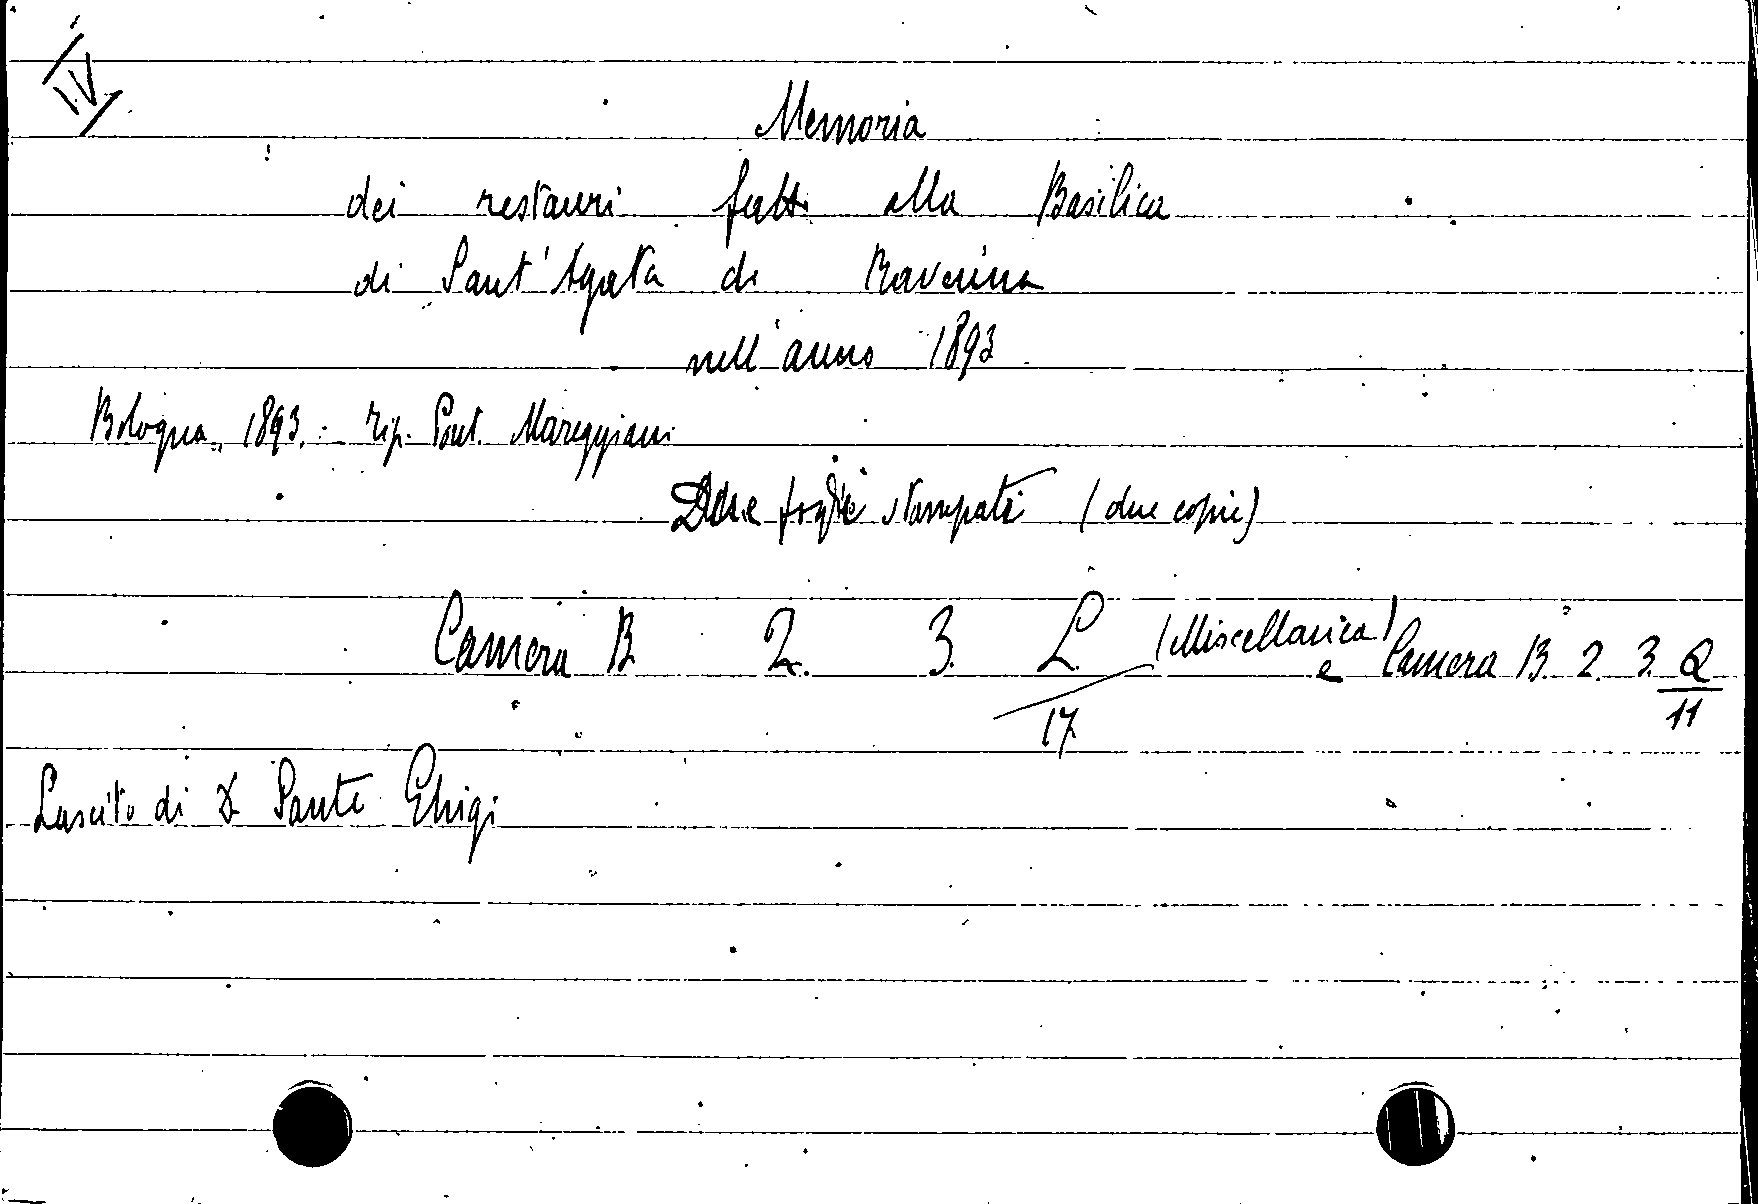 IV
Memoria
dei restauri fatti alla Basilica
di Sant'Agata di Ravenna
nell'anno 1893
Bologna, 1893. - Tip. Pont. Mareggiani
Due foglie stampati (due copie)
Camera B 2. 3. L (Miscellanica) e Camera B. 2. 3. Q
17 11
Lascito di D. Sante Ghigi